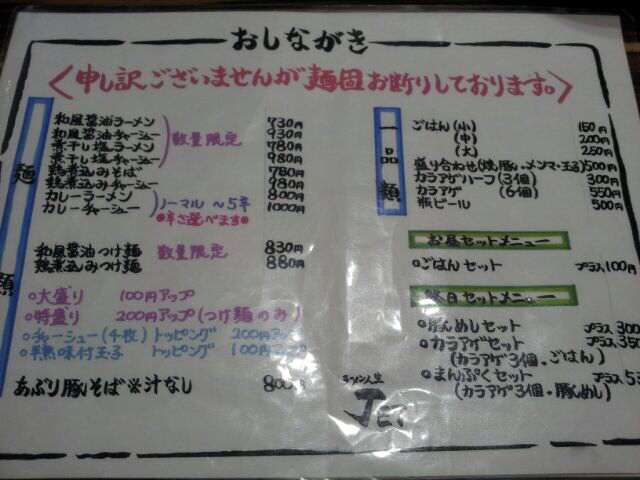 おしながき
〈申し訳ございませんが麺固お断りしております。〉
麺類
和風醤油ラーメン 730円
和風醤油チャーシュー 930円
煮干し塩ラーメン 780円
煮干し塩チャーシュー 980円
数量限定
鶏煮込みそば 780円
鶏煮込みチャーシュー 980円
カレーラーメン 800円
カレーチャーシュー 1000円
ノーマル〜5辛
●辛さ選べます●
和風醤油つけ麺 数量限定 830円
鶏煮込みつけ麺 880円
○大盛り 100円アップ
○特盛り 200円アップ(つけ麺のみ)
○チャーシュー(4枚)トッピング 200円アップ
○半熟味付玉子 トッピング 100円アップ
あぶり豚そば※汁なし 800円
一品類
ごはん(小) 150円
(中) 200円
(大) 250円
盛り合わせ(焼豚・メンマ・玉子) 500円
カラアゲハーフ(3個) 300円
カラアゲ (6個) 550円
瓶ビール 500円
お昼セットメニュー
○ごはんセット プラス100円
終日セットメニュー
○豚めしセット プラス300
○カラアゲセット プラス350
(カラアゲ3個・ごはん)
○まんぷくセット プラス
(カラアゲ3個・豚めし)
ラーメン人生
JET